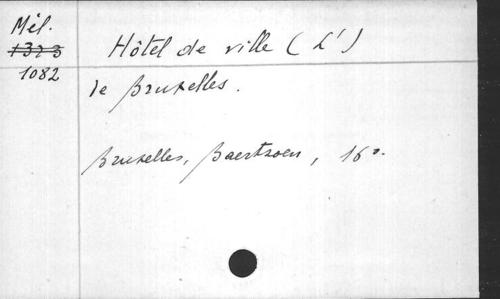 Mél.
1323
1082
Hôtel de ville (L')
de Bruxelles.
Bruxelles, Baertsoen, 16°.